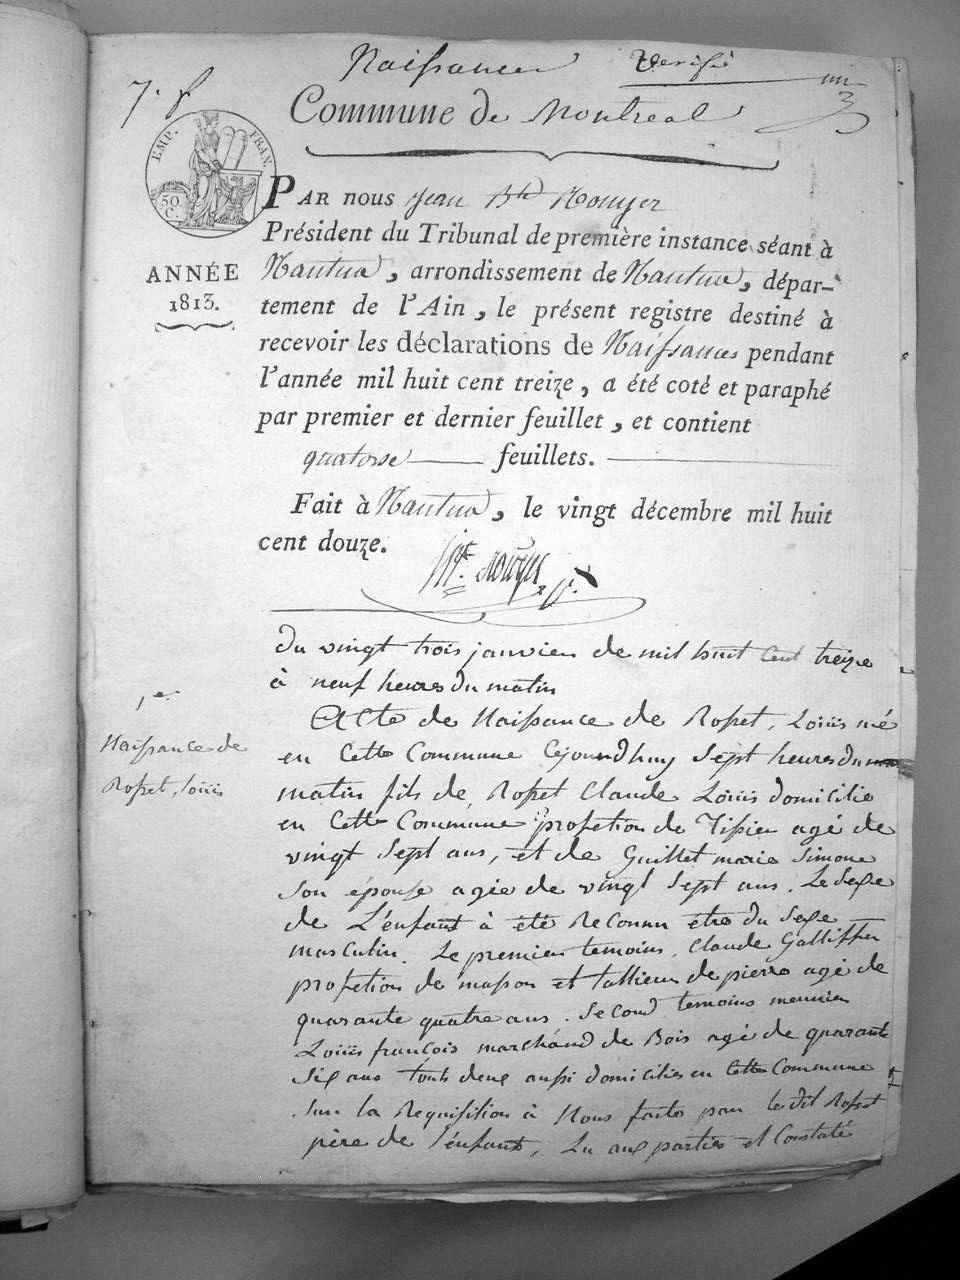 Naissances Verifié
7. f
3
Commune de Montreal
EMP. FRAN.
50 C.
PAR nous Jean Bte Rouyer
Président du Tribunal de première instance séant à
ANNÉE
1813.
Nantua, arrondissement de Nantua, dépar-
tement de l'Ain, le présent registre destiné à
recevoir les déclarations de Naissances pendant
l'année mil huit cent treize, a été coté et paraphé
par premier et dernier feuillet, et contient
quatorse feuillets.
Fait à Nantua, le vingt décembre mil huit
cent douze.
Rouyer
Du vingt trois janvier de mil huit cent treize
à neuf heures du matin
1er
Naissance de
Rosset, Loüis
Acte de Naissance de Rosset, Loüis né
en Cette Commune Cejourdhuy Sept heures du
matin fils de Rosset Claude Loüis domicilié
en Cette Commune profetion de Tissier agé de
vingt Sept ans, et de Guillet marie Simone
Son épouse agée de vingt Sept ans. Le Sexe
de L'énfant à été Reconnu étre du Sexe
masculin. Le premier temoins, Claude Galliffet
profetion de masson et tallieur de pierre agé de
quarante quatre ans. Second temoins meunier
Loüis françois marchánd de Bois agé de quarante
Six ans touts deux aussi domiciliés en Cette Commune
Sur la Requisition à Nous faite par le dit Rosset
père de l'énfant, Lu aux parties et Constaté